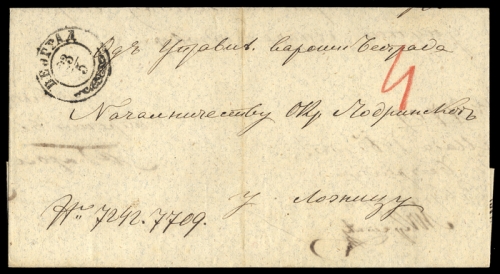 БЕОГРАД
23/5
Одъ Управит. вароши Београда
Началничеству Окр Подринскогъ
У Лозницу
№ 7242.7709.